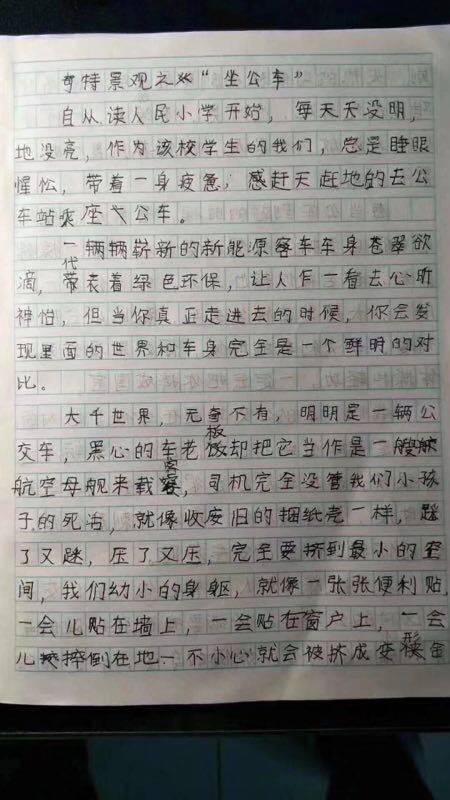 奇特景观之"坐公车"
自从读人民小学开始，每天天没明，
地没亮，作为该校学生的我们，总是睡眼
惺忪，带着一身疲惫，感赶天赶地的去公
车站乘座公车。
一辆辆崭新的新能源客车车身苍翠欲
滴，代表着绿色环保，让人乍一看去心旷
神怡，但当你真正走进去的时候，你会发
现里面的世界和车身完全是一个鲜明的对
比。
大千世界，无奇不有，明明是一辆公
交车，黑心的车老板却把它当作是一艘
航空母舰来载客，司机完全没管我们小孩
子的死治，就像收废旧的捆纸壳一样，
了又，压了又压，完全要挤到最小的空
间，我们幼小的身躯，就像一张张便利贴，
一会儿贴在墙上，一会贴在窗户上，一会
儿摔倒在地一不小心就会被挤成变形金